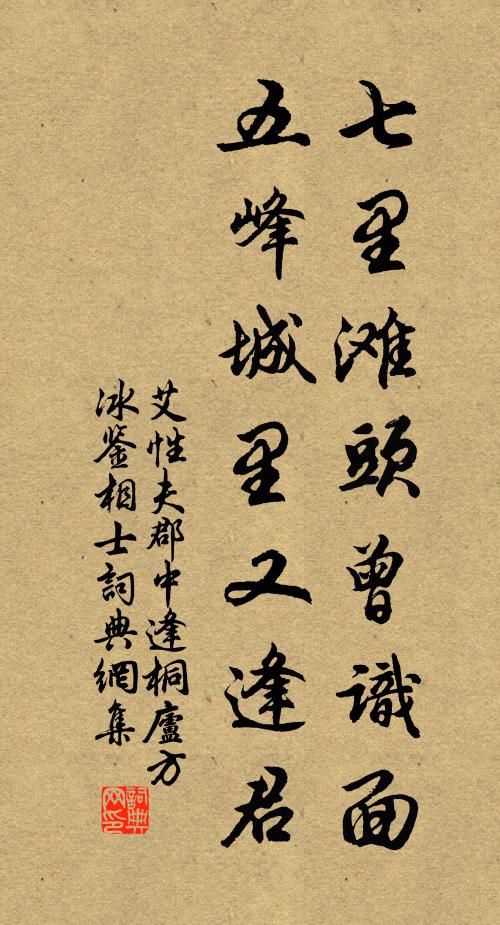 七里滩頭曾識面
五峰城里又逢君
艾性夫郡中逢桐廬方
冰鉴相士詞典網集
詞典网印